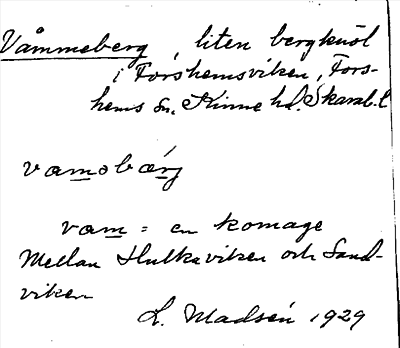 Våmmeberg, liten bergknöl
i Forshemsviken, Fors-
hems sn. Kinne hd. Skarab. l.
vamobärg
vam = en komage
Mellan Hulkaviken och Sand-
viken
L. Madsén 1929